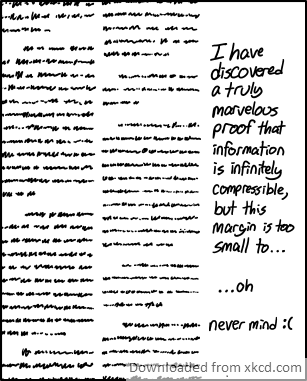 I have
discovered
a truly
marvelous
proof that
information
is infinitely
compressible,
but this
margin is too
small to...
...oh
never mind :(
Downloaded from xkcd.com